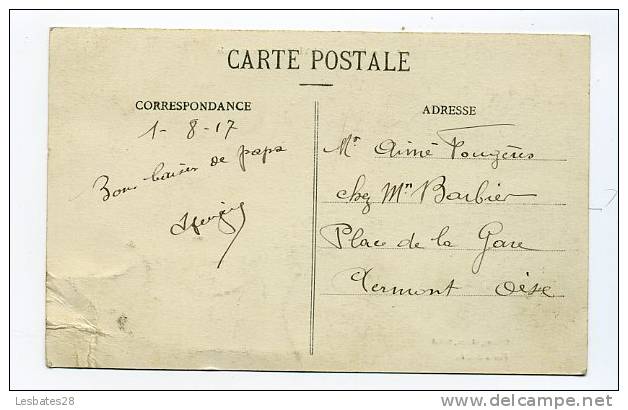 CARTE POSTALE
CORRESPONDANCE
1-8-17
Bons baisers de papa
ADRESSE
Mr Aimé Fougères
chez Mr Barbier
Place de la Gare
Clermont Oise
Lesbates28
www.delcampe.net